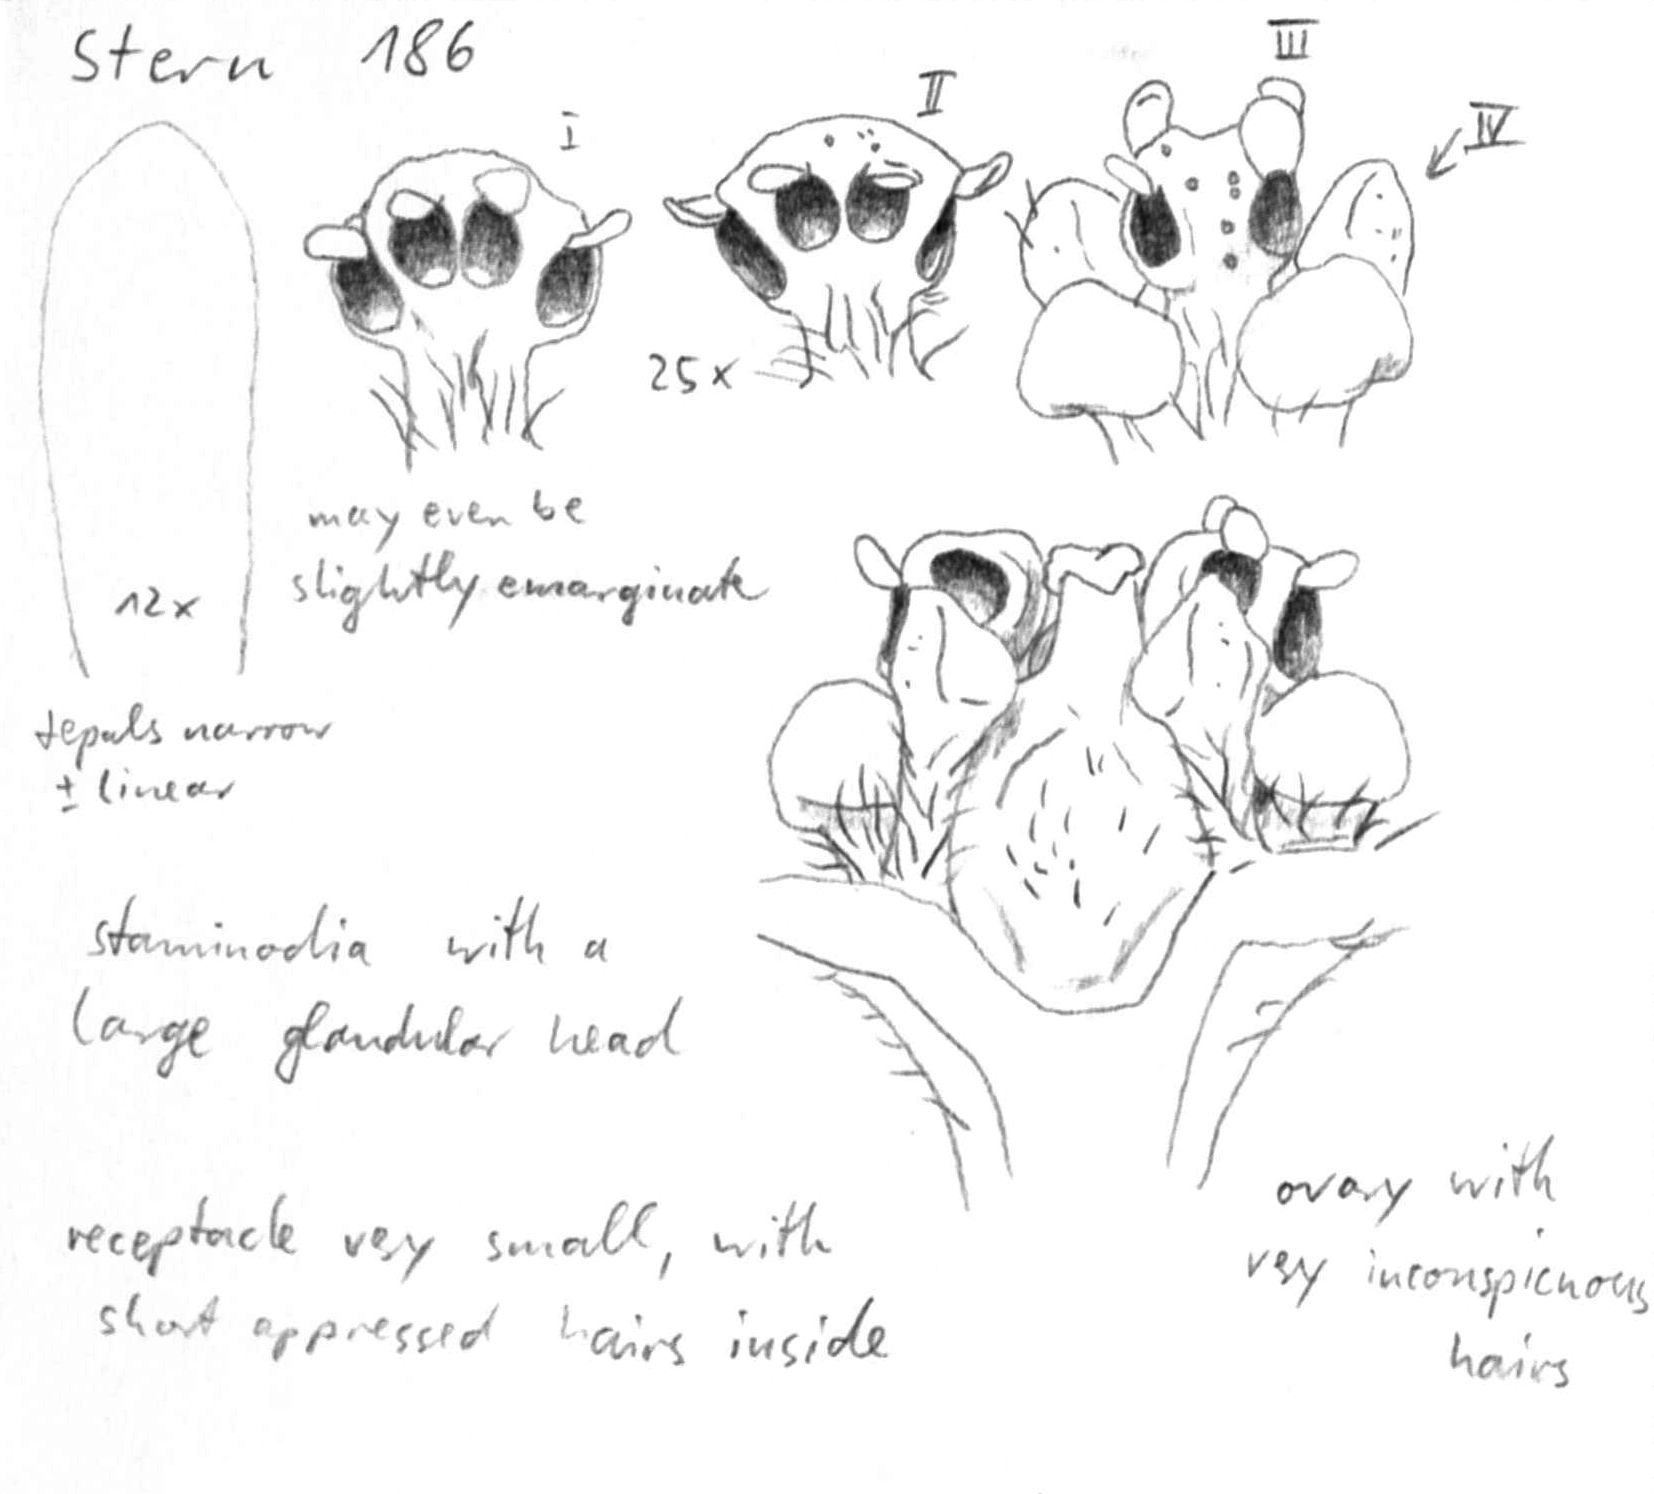 Stern 186
I
II
III
IV
25x
may even be
slightly emarginate
12x
tepals narrow
± linear
staminodia with a
large glandular head
receptacle very small, with
short appressed hairs inside
ovary with
very inconspicuous
hairs